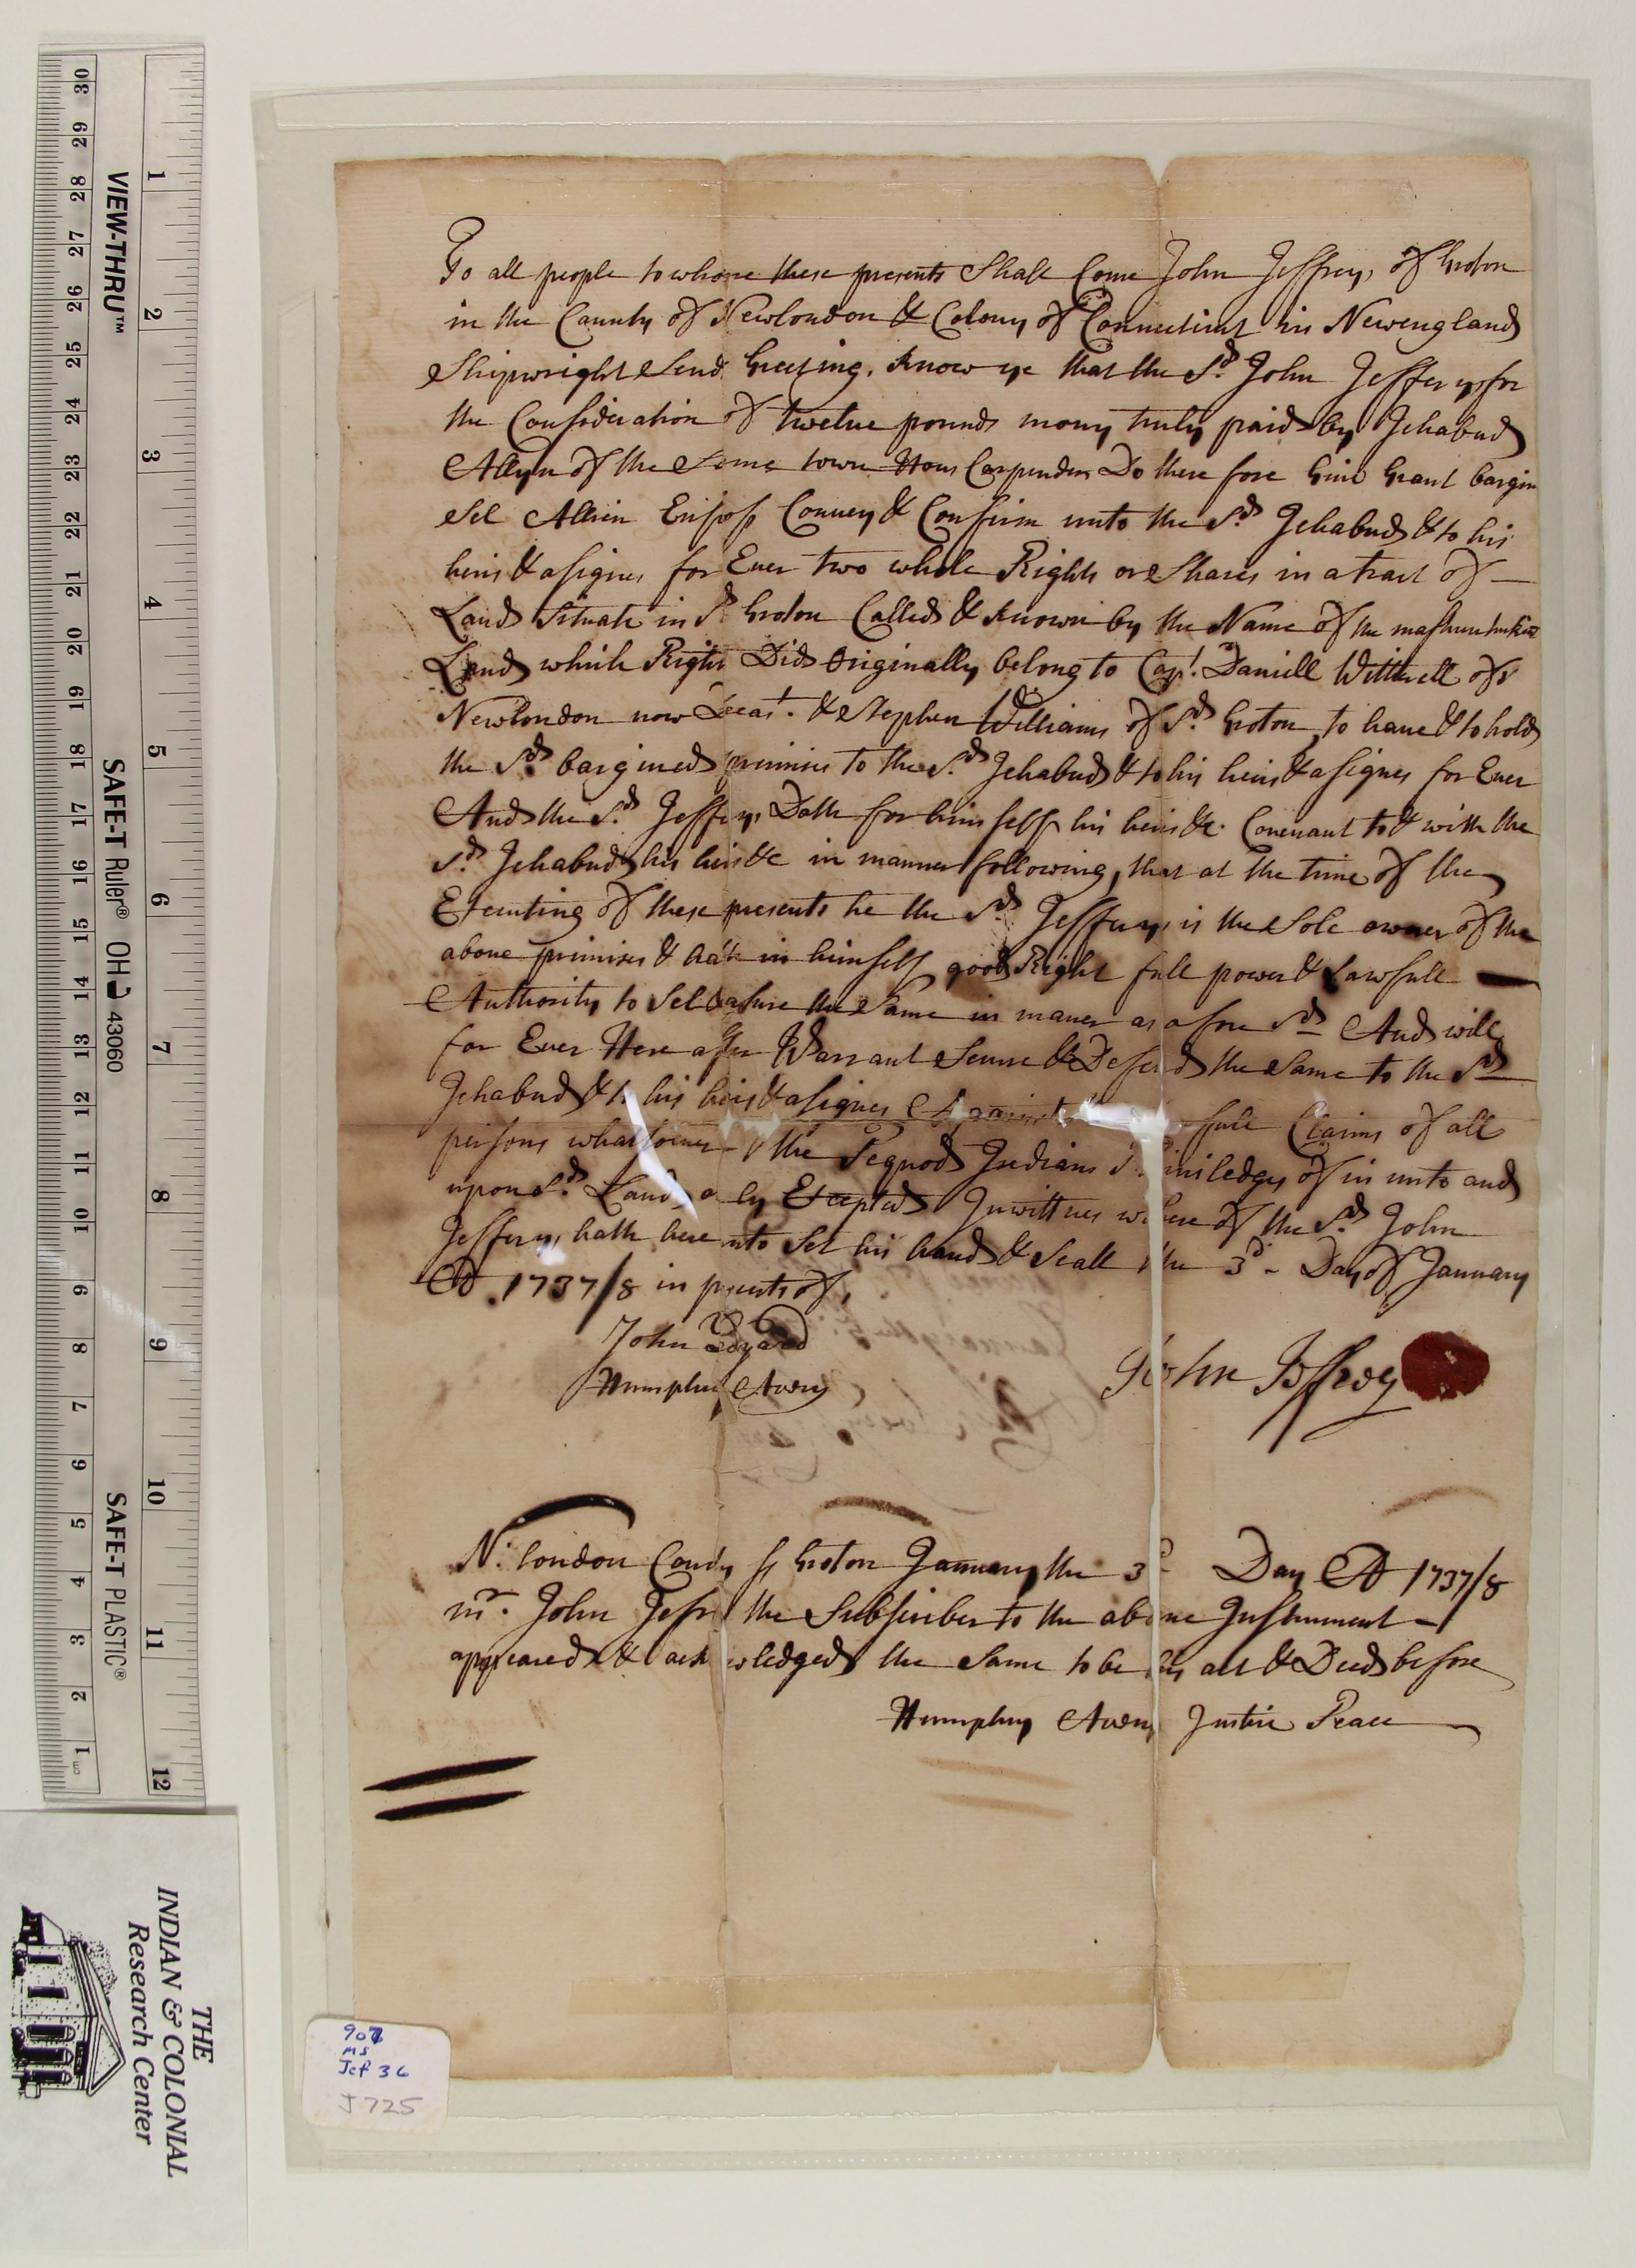 To all people to whome these presents Shall Come John Jeffrey, of Groton
in the County of Newlondon & Colony of Connecticut in Newengland
Shipwright Send Greeting. Know ye that the Sd. John Jeffery for
the Consideration of twelve pounds mony truly paid by Ichabud
Allyn of the Same town Hous Carpender Do there fore Give Grant bargin
Sel Allien Enfeoff Convey & Confirm unto the Sd. Ichabud & to his
heirs & asignes for Ever two whole Rights or Shares in a tract of
Land Situate in Sd. Groton Called & Known by the Name of the
Land which Right Did Originally belong to Capt. Daniell Witherell of
Newlondon now Deast. & Stephen Williams of Sd. Groton to have & to hold
the Sd. bargined primises to the Sd. Ichabud & to his heirs & asignes for Ever
And the Sd. Jeffery Doth for him self his heirs &c. Covenant to & with the
Sd. Ichabud his heirs &c in manner following, that at the time of the
Executing of these presents he the Sd. Jeffery is the Sole owner of the
above primises & hath in himself good Right full power & Lawfull
Authority to Sel & asure the Same in maner as afore Sd And will
for Ever Here after Warrant Secure & Defend the Same to the Sd
Ichabud & to his heirs & asignes Against full Claims of all
persons whatsoever the Pequod Indians of in unto and
upon Sd. Land only Excepted In wittnes where of the Sd. John
Jeffery hath here unto Set his hand & Seall the 3d Day of January
AD. 1737/8 in presents of,
John Ledyard
Humphry Avery
John Jeffrey
N: london County ss Groton January the 3d Day AD 1737/8
mr. John Jefry the Subscriber to the above Instrument
appeared & acknowledged the Same to be his act & Deed before
Humphry Avery Justice Peace
907
MS
Jef 36
J725
VIEW-THRU™
SAFE-T Ruler® OHD 43060
SAFE-T PLASTIC®
1 2 3 4 5 6 7 8 9 10 11 12
30 29 28 27 26 25 24 23 22 21 20 19 18 17 16 15 14 13 12 11 10 9 8 7 6 5 4 3 2 1
cm
THE
INDIAN & COLONIAL
Research Center